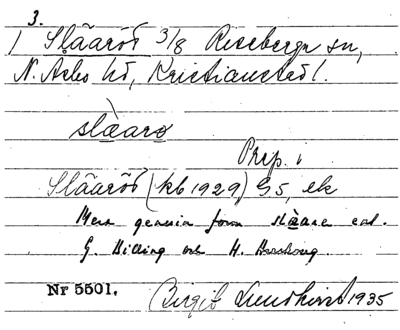 3.
1 Slääröd 3/8 Riseberga sn,
N. Åsbo hd, Kristianstad l.
slæarø
Prep. i
Slääröd (kb 1929) G5, ek
Mera genuin form slæare enl.
G. Billing och H.
Nr 5501. Birgit Lundkvist 1935